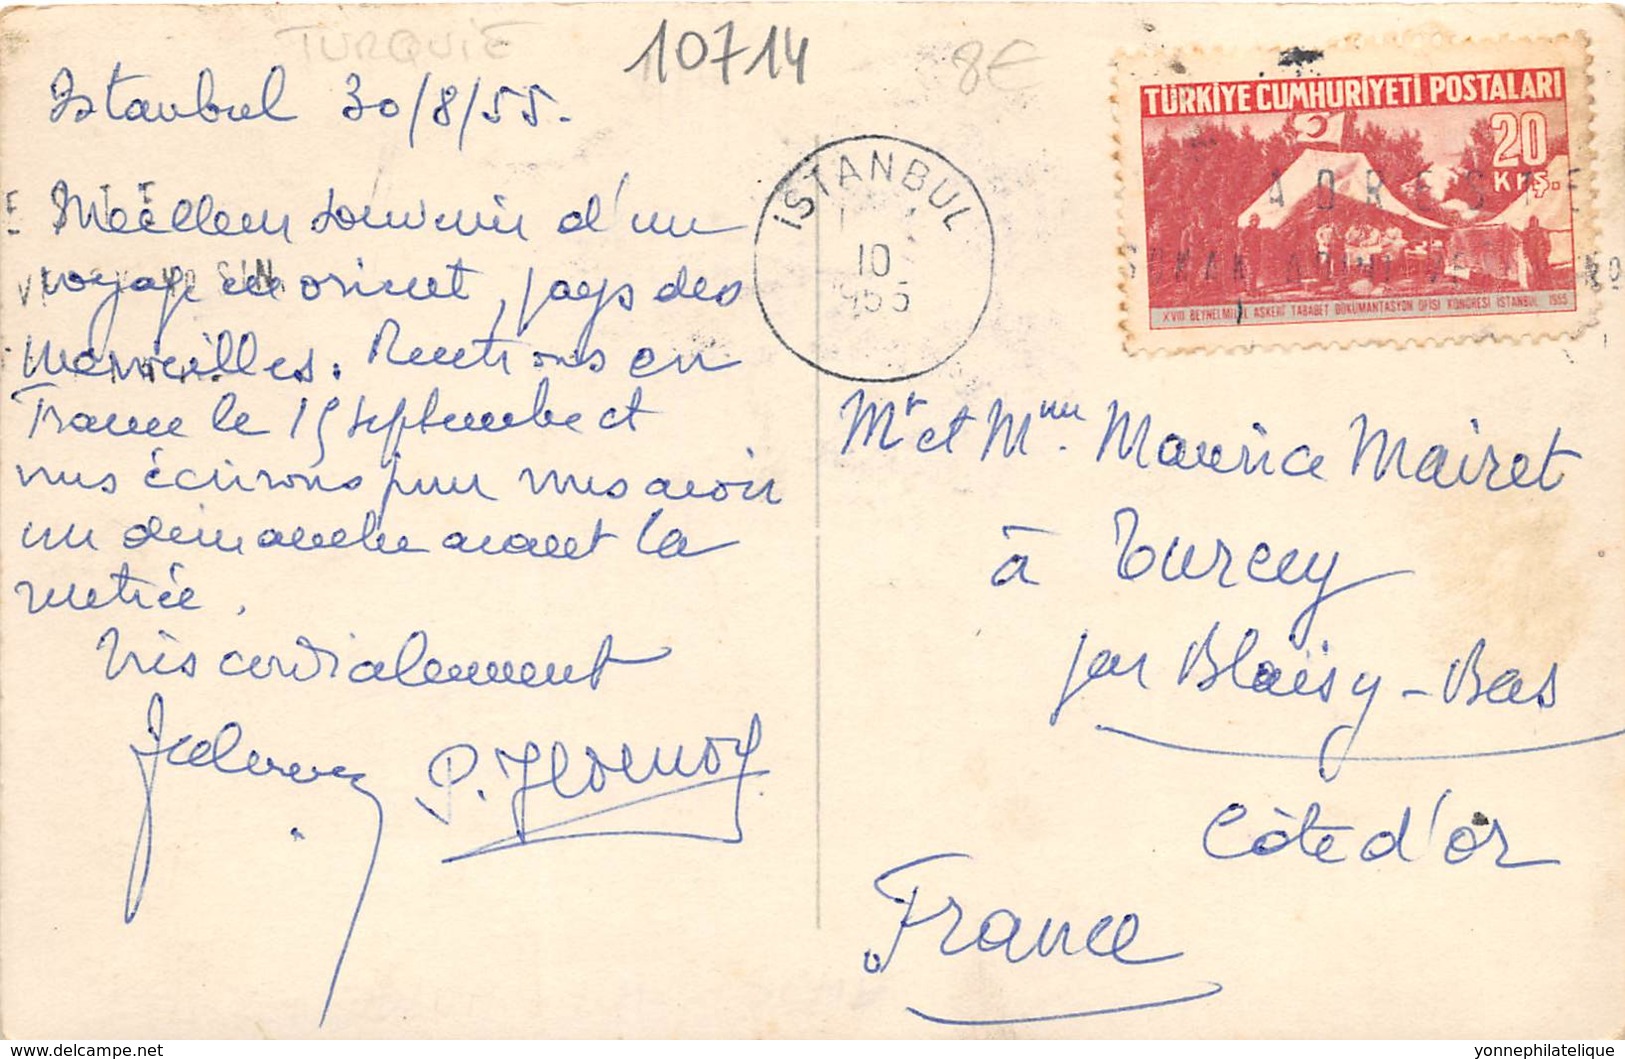 TURQUIE
10714
8€
Istanbul 30/8/55.
Meilleur souvenir d'un
voyage en orient, pays des
merveilles. Rentrons en
France le 15 septembre et
vous écrirons pour vous avoir
un dimanche avant la
rentrée.
Très cordialement
P.
TÜRKİYE CUMHURİYETİ POSTALARI
20
Krş.
XVIII BEYNELMİLEL ASKERİ TABABET DOKÜMANTASYON OFİSİ KONGRESİ İSTANBUL 1955
İSTANBUL
10
1955
ADRESTE
Mr et Mme. Maurice Mairet
à Turcey
par Blaisy-Bas
Côte d'or
France
www.delcampe.net
yonnephilatelique